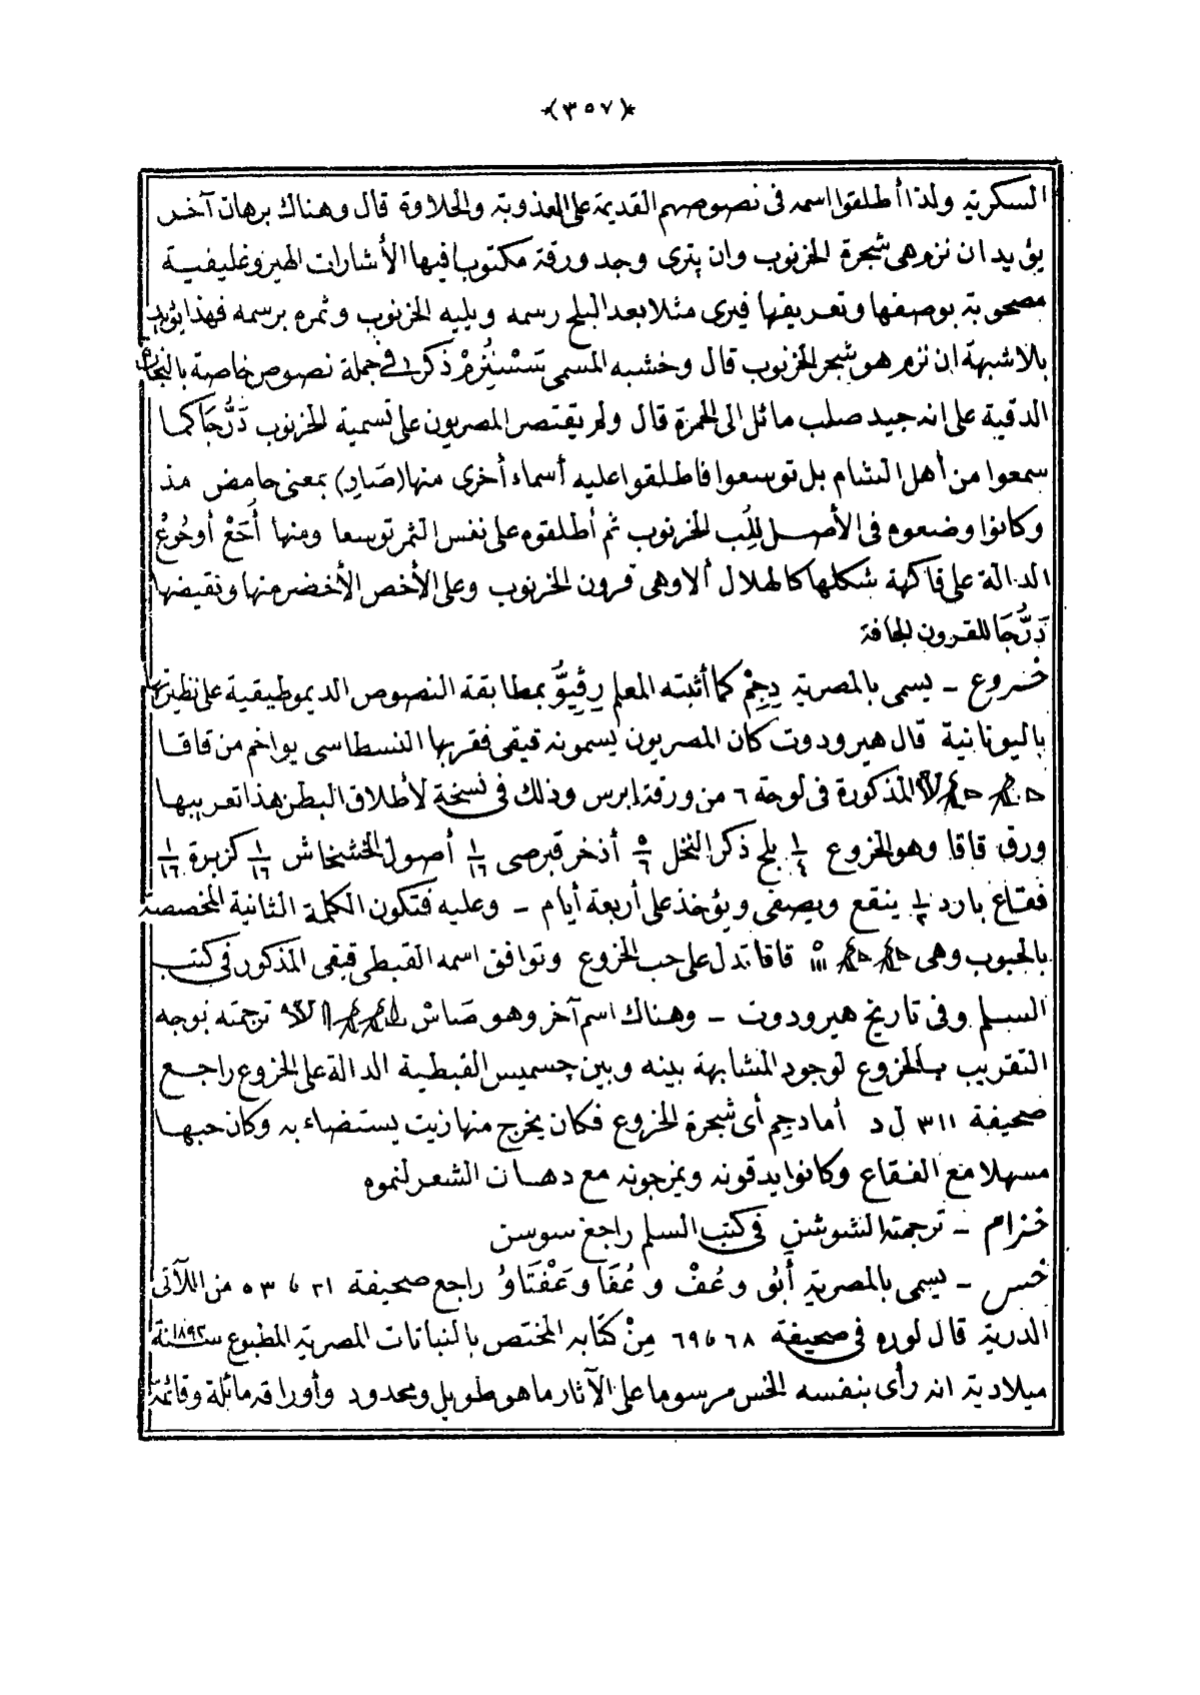 *(٣٥٧)*
السكرية ولذا أطلقوا اسمه فى نصوصهم القديمة على العذوبة والحلاوة قال وهناك برهان آخر
يؤيد ان نزم هى شجرة الخرنوب وان پترى وجد ورقة مكتوب فيها الأشارات الهيروغليفية
مصحوبة بوصفها وتعريفها فيرى مثلا بعد البلح رسمه ويليه الخرنوب وثمره برسمه فهذا يؤيد
بلا شبهة ان نزم هو شجر الخرنوب قال وخشبه المسمى ذكر فى جملة نصوص خاصة
الدقية على انه جيد صلب مائل الى الحمرة قال ولم يقتصر المصريون على تسمية الخرنوب دَرُّجَا كما
سمعوا من أهل الشام بل توسعوا فاطلقوا عليه أسماء أخرى منها (صَارِ) بمعنى حامض مذ
وكانوا وضعوه فى الأصل للُب الخرنوب ثم أطلقوه على نفس الثمر توسعا ومنها
الدالة على فاكهة شكلها كالهلال ألا وهى قرون الخرنوب وعلى الأخص الأخضر منها ونقيضها
دَرُّجَا للقرون الجافة
خروع - يسمى بالمصرية دِجِمْ كما أثبته المعلم رِڤِيُوُّ بمطابقة النصوص الديموطيقية على نظيرتها
باليونانية قال هيرودوت كان المصريون يسمونه قيقى فقربها النسطاسى يواخم من قاقا
المذكورة فى لوحة ٦ من ورقة إبرس وذلك فى نسخة لأطلاق البطن هذا تعريبها
ورق قاقا وهو الخروع ١/٤ بلح ذكر النخل ٥/٦ أذخر قبرصى ١/١٦ أصول الخشخاش ١/١٦ كزبرة ١/١٦
فقاع بارد ينقع ويصفى ويؤخذ على أربعة أيام - وعليه فتكون الكلمة الثانية المخصصة
بالحبوب وهى قاقا تدل على حب الخروع وتوافق اسمه القبطى قيقى المذكور فى كتب
السلم وفى تاريخ هيرودوت - وهناك اسم آخر وهو صَاسْ ترجمته بوجه
التقريب بالخروع لوجود المشابهة بينه وبين چسميس القبطية الدالة على الخروع راجع
صحيفة ٣١١ ل د أما دجم أى شجرة الخروع فكان يخرج منها زيت يستضاء به وكان حبها
مسهلا مع الفقاع وكانوا يدقونه ويمزجونه مع دهان الشعر لنموه
خزام - ترجمته الشوشن فى كتب السلم راجع سوسن
خس - يسمى بالمصرية أَبُو و عُفْ و عُفَا وعَفْتَاوُ راجع صحيفة ٣١ ، ٥٣ من اللآلئ
الدرية قال لوره فى صحيفة ٦٨ ، ٦٩ مِنْ كتابه المختص بالنباتات المصرية المطبوع سنة ١٨٩٢
ميلادية انه رأى بنفسه الخس مرسوما على الآثار ما هو طويل ومحدود وأوراقه مائلة وقائمة